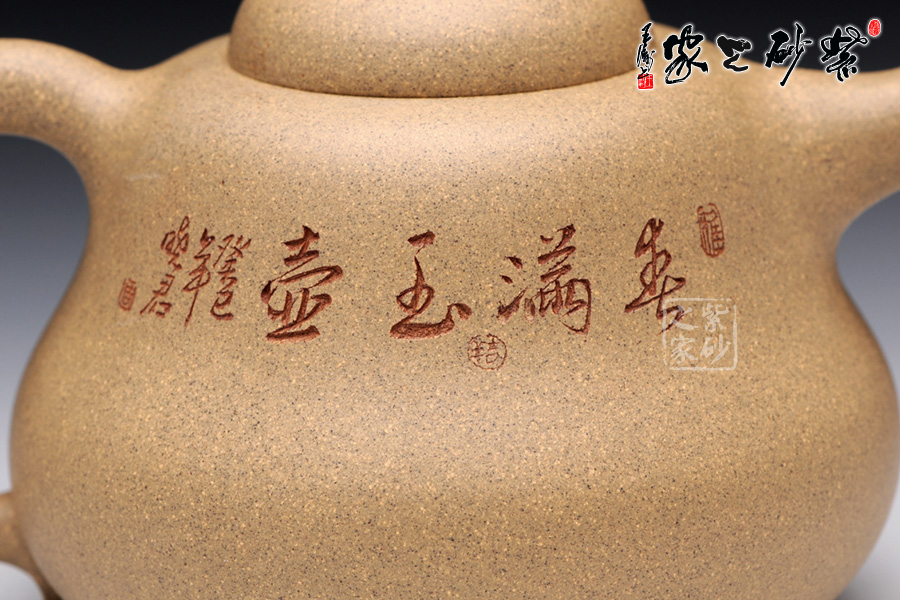 紫砂之家
春滿玉壺
癸巳
吉
紫砂
之家